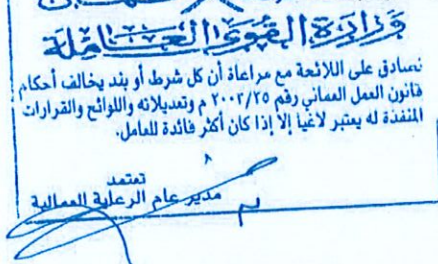 وزارة القوى العاملة
نصادق على اللائحة مع مراعاة أن كل شرط أو بند يخالف أحكام
قانون العمل العماني رقم ٢٠٠٣/٣٥ م وتعديلاته واللوائح والقرارات
المنفذة له يعتبر لاغيا إلا إذا كان أكثر فائدة للعامل.
تعتمد
مدير عام الرعاية العمالية